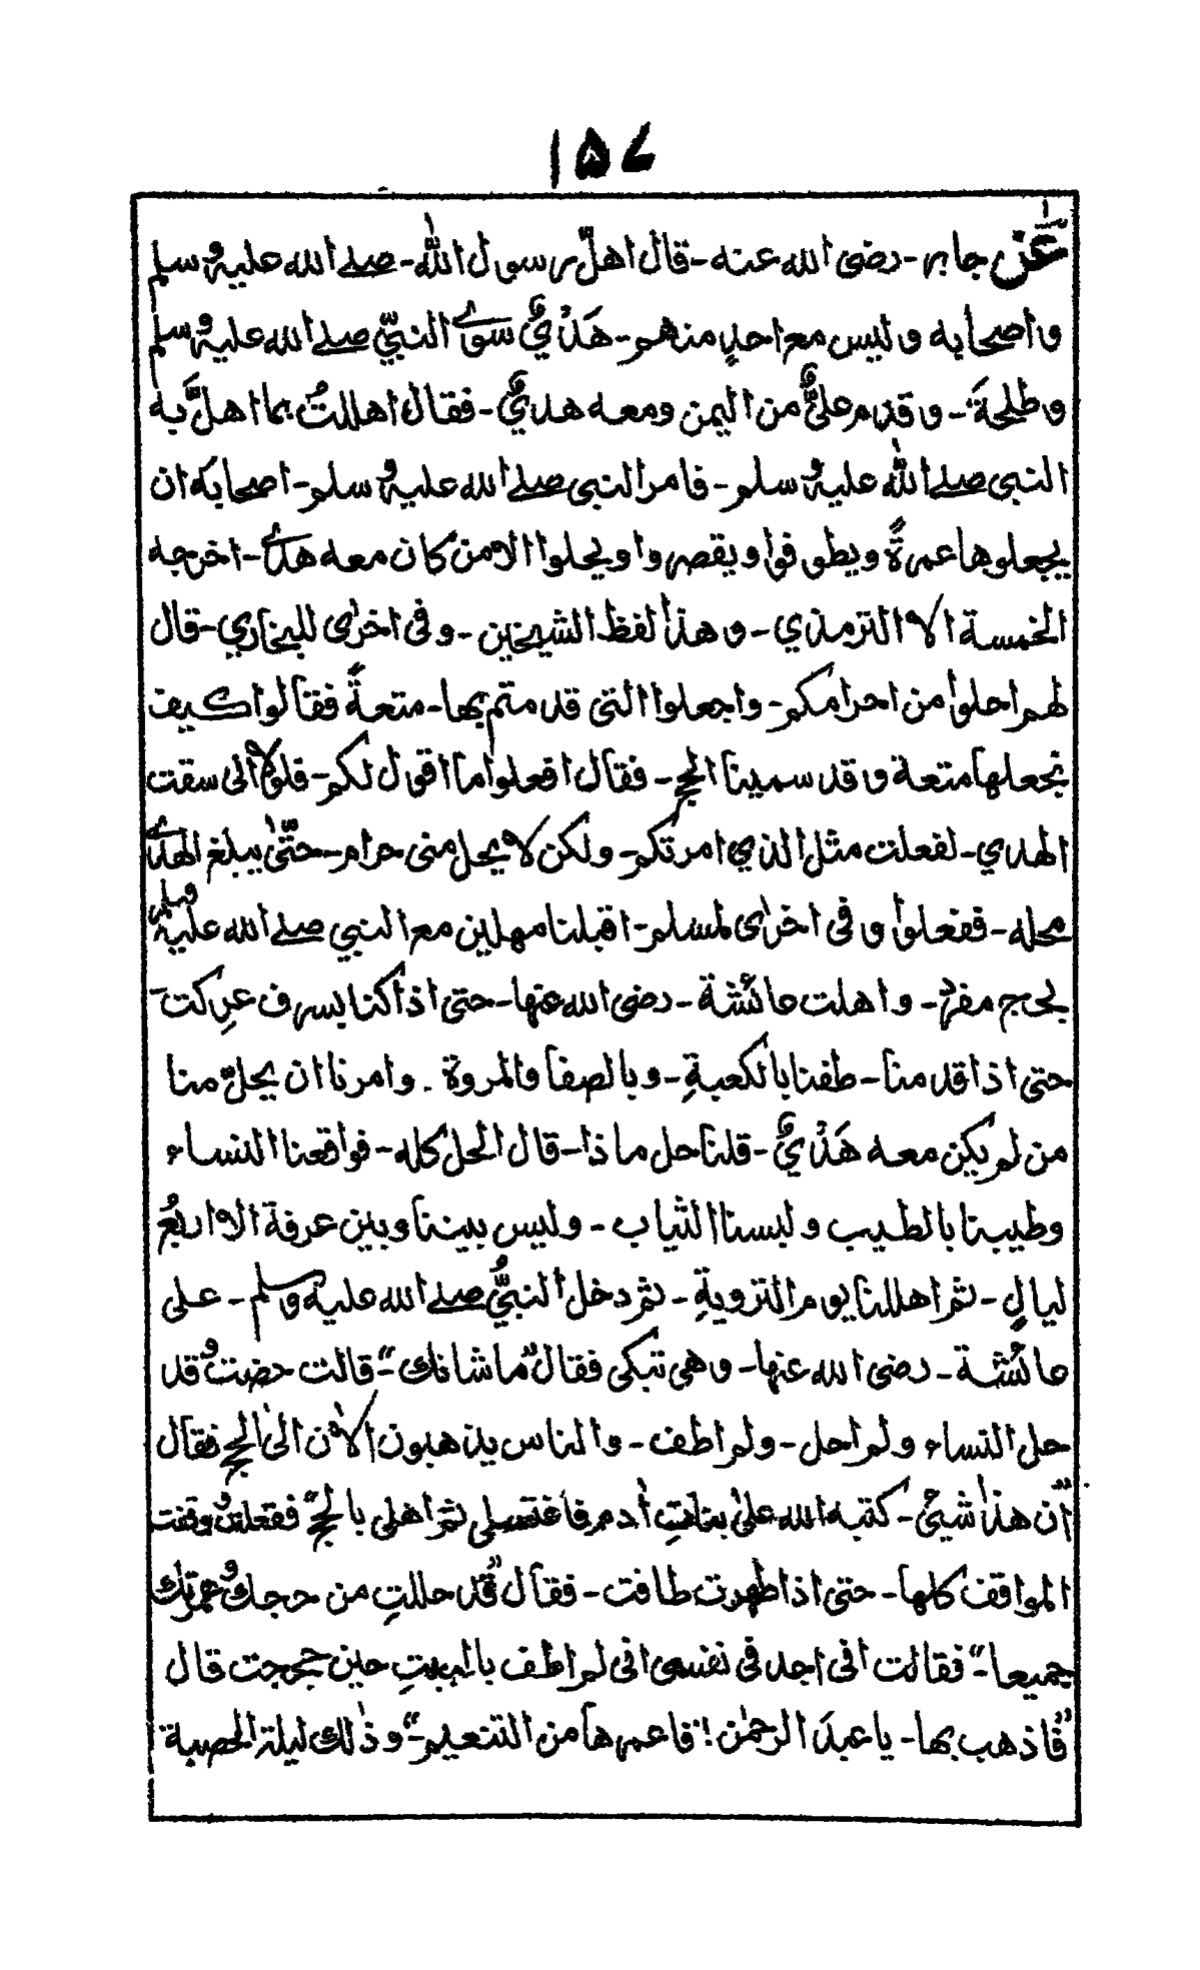 ۱۵۷
عَنْ جابر - رضی الله عنه - قال اهلّ رسول اللّٰه - صلے الله علیہ وسلم
واصحابه ولیس مع احدٍ منهم - هَدْيٌ سَوٰے النبيّ صلے الله علیہ وسلم
وطلحةَ - وقدم علیٌّ من الیمن ومعه هديٌ - فقال اهللتُ بما اهلَّ به
النبی صلے اللّٰه علیہ وسلم - فامر النبی صلے الله علیہ وسلم - اصحابه ان
یجعلوها عمرةً ویطوفوا ویقصروا ویحلوا الا من کان معه هدے - اخرجه
الخمسة الا الترمذي - وهذا لفظ الشیخین - وفی اخرٰی للبخاري - قال
لهم احلوا من احرامکم - واجعلوا التی قدمتم بها - متعةً فقالوا کیف
نجعلها متعة وقد سمینا الحج - فقال افعلوا ما اقول لکم - فلولا انی سقت
الهدي - لفعلت مثل الذي امرتکم - ولکن لا یحل منی حرام - حتّیٰ یبلغ الهدے
محله - ففعلوا وفی اخرٰی لمسلم - اقبلنا مهلین مع النبي صلے الله علیہ وسلم
بحج مفرد - واهلت عائشة - رضی الله عنها - حتی اذا کنا بسرف عرِکت
حتی اذا قدمنا - طفنا بالکعبةِ - وبالصفا والمروة . وامرنا ان یحلّ منا
من لم یکن معه هَدْيٌ - قلنا حل ما ذا - قال الحل کله - فواقعنا النساء
وطیبنا بالطیب ولبسنا الثیاب - ولیس بیننا وبین عرفة الا اربعُ
لیالٍ - ثم اهللنا یوم الترویةِ - ثم دخل النبيُّ صلے الله علیه وسلم - علی
عائشة - رضی الله عنها - وهی تبکی فقال "ما شانك" - قالت حضت وقد
حل النساء ولم احل - ولم اطف - والناس یذهبون الاٰن الی الحج فقال
"اّن هذا شیئ - کتبه الله علیٰ بناتِ اٰدم فاغتسلی ثم اهلی بالحجّ" ففعلت ووقفت
المواقف کلها - حتی اذا طهرت طافت - فقال "قد حللتِ من حجك وعمرتك
جمیعا" - فقالت انی اجد فی نفسی انی لم اطف بالبیتِ حین حججت قال
"فاذهب بها - یا عبدَ الرحمٰن! فاعمرها من التنعیم" - وذٰلك لیلة الحصبة